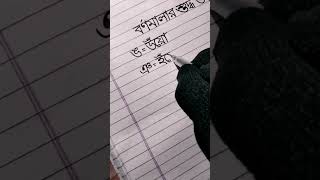 বর্ণমালার শুদ্ধ
ঙ = উঁয়ো
ঞ = ইঁ